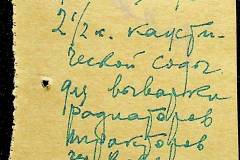 2 1/2 к. каусти-
ческой соды
для выварки
радиаторов
тракторов